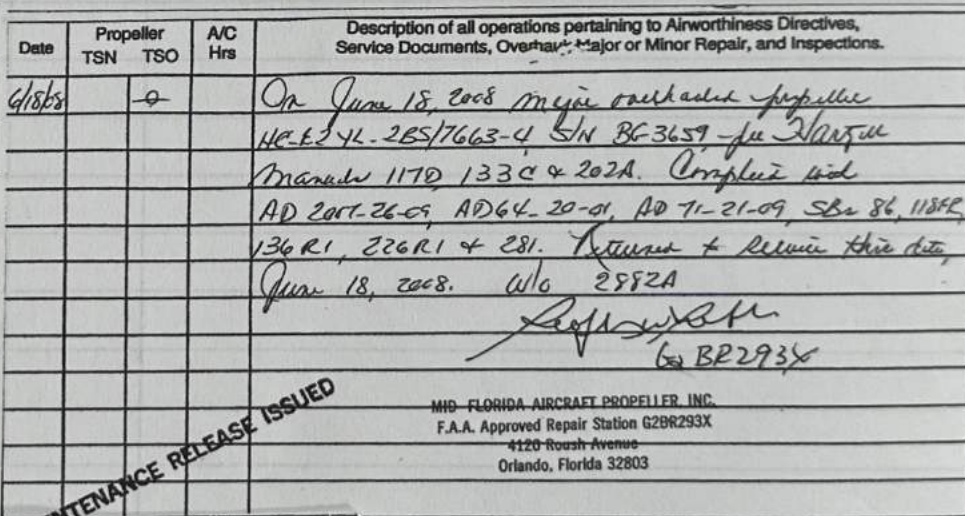 Date Propeller TSN TSO A/C Hrs Description of all operations pertaining to Airworthiness Directives,
Service Documents, Overhaul, Major or Minor Repair, and Inspections.
6/18/08 0 On June 18, 2008 major overhauled propeller
HC-E2YL-2BS/7663-4 S/N BG-3659 - per Hartzell
Manuals 117D, 133C & 202A. Complied with
AD 2007-26-09, AD 64-20-01, AD 71-21-09, SBs 86, 118FR,
136R1, 226R1 & 281. Returned to Service this date,
June 18, 2008. W/O 2882A
G2BR293X
MID-FLORIDA AIRCRAFT PROPELLER, INC.
F.A.A. Approved Repair Station G2BR293X
4120 Roush Avenue
Orlando, Florida 32803
NTENANCE RELEASE ISSUED